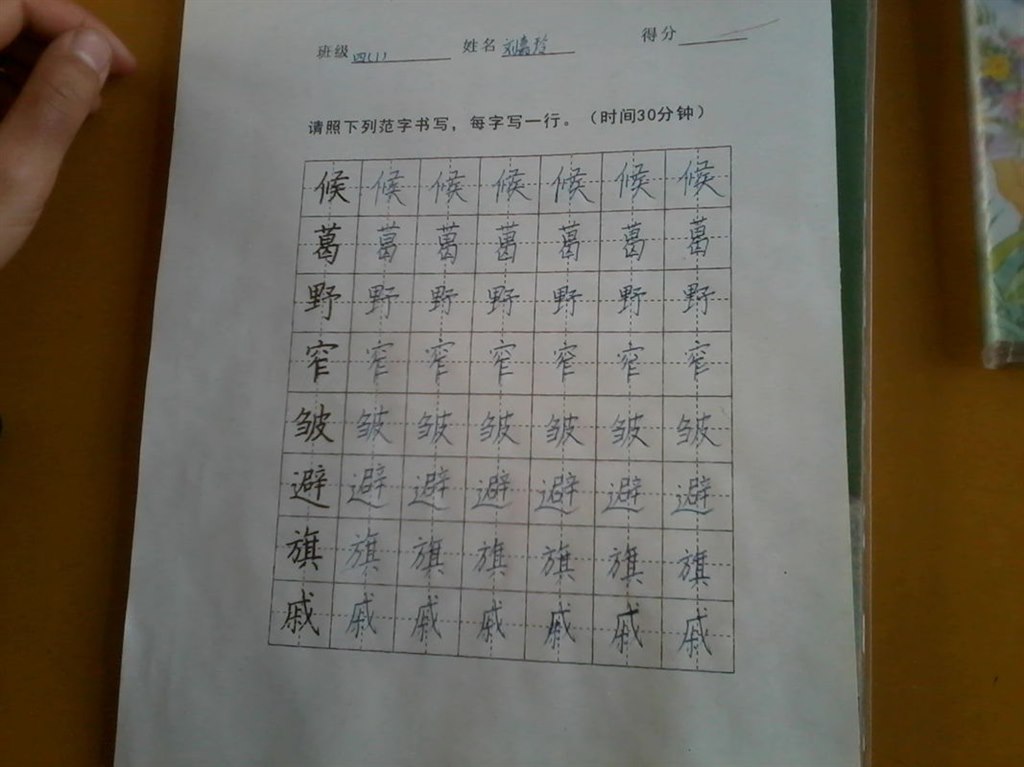 班级 四(1) 姓名 刘嘉玲 得分
请照下列范字书写，每字写一行。（时间30分钟）
候 候 候 候 候 候 候
葛 葛 葛 葛 葛 葛 葛
野 野 野 野 野 野 野
窄 窄 窄 窄 窄 窄 窄
皱 皱 皱 皱 皱 皱 皱
避 避 避 避 避 避 避
旗 旗 旗 旗 旗 旗 旗
戚 戚 戚 戚 戚 戚 戚